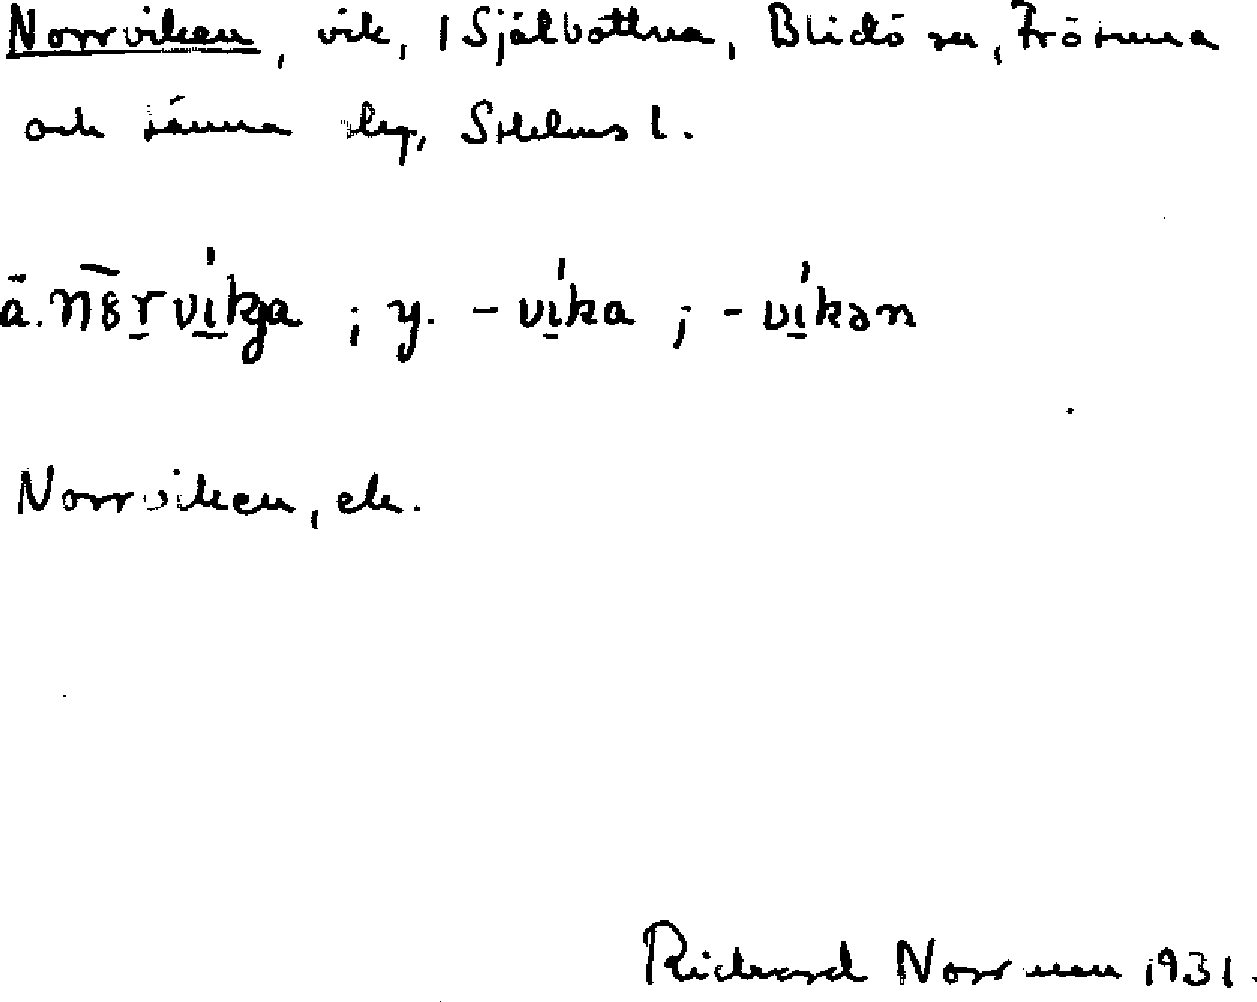 Norrviken, vik, 1 Själbottna, Blidö sn, Frötuna
och Länna slg, Sthlms l.
ä. nȣrvíkja ; y. - víka ; - víkən
Norrviken, ek.
Rickard Norrman 1931.